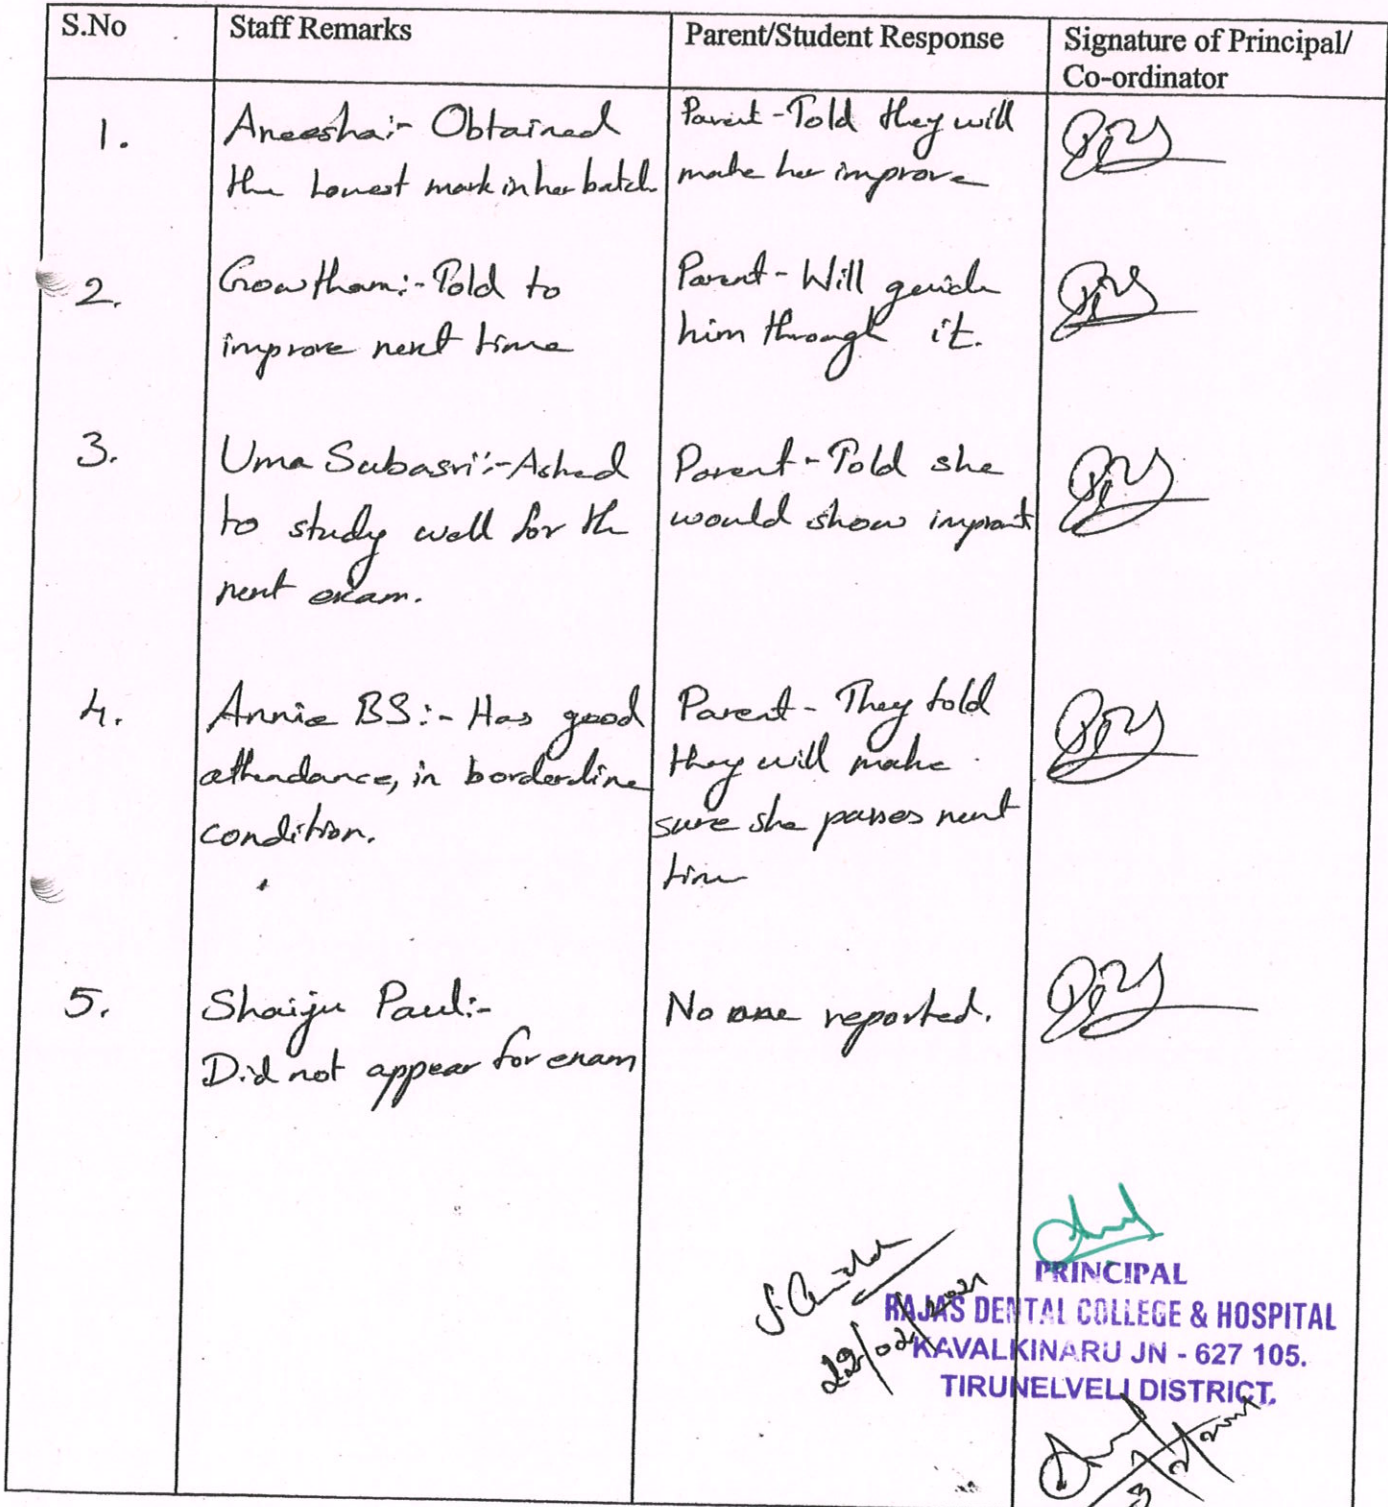 S.No Staff Remarks Parent/Student Response Signature of Principal/
Co-ordinator
1. Aneesha:- Obtained
the Lowest mark in her batch
Parent - Told they will
make her improve
2. Gowtham:- Told to
improve next time
Parent - Will guide
him through it.
3. Uma Subasri:- Asked
to study well for the
next exam.
Parent - Told she
would show
4. Annie BS:- Has good
attendance, in borderline
condition.
Parent - They told
they will make
sure she passes next
time
5. Shaiju Paul:-
Did not appear for exam
No one reported.
PRINCIPAL
RAJAS DENTAL COLLEGE & HOSPITAL
KAVALKINARU JN - 627 105.
TIRUNELVELI DISTRICT.